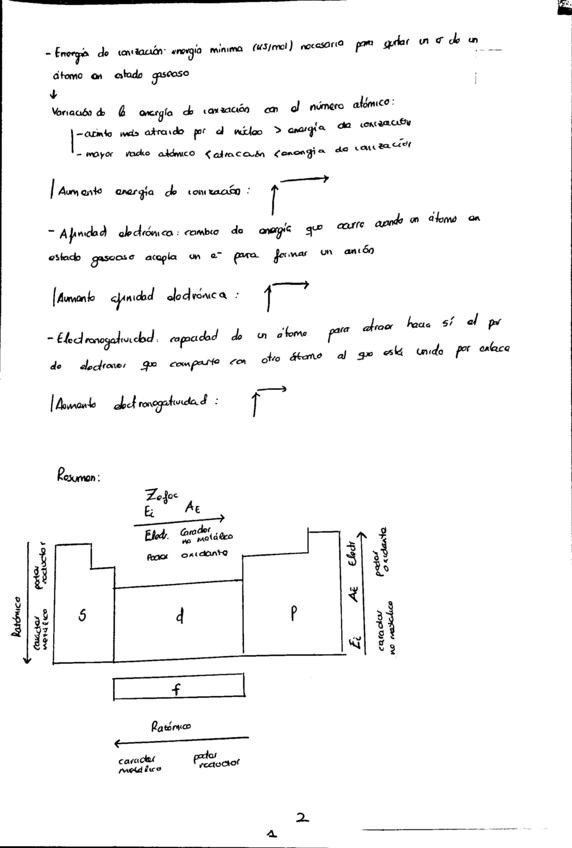 - Energía de ionización: energía mínima (kJ/mol) necesaria para quitar un e⁻ de un
átomo en estado gaseoso
↓
Variación de la energía de ionización con el número atómico:
- cuanto más atraido por el núcleo > energía de ionización
- mayor radio atómico < atracción < energía de ionización
Aumento energía de ionización: ↑→
- Afinidad electrónica: cambio de energía que ocurre cuando un átomo en
estado gaseoso acepta un e⁻ para formar un anión
Aumento afinidad electrónica: ↑→
- Electronegatividad: capacidad de un átomo para atraer hacia sí el par
de electrones que comparte con otro átomo al que está unido por enlace
Aumento electronegatividad: ↑→
Resumen:
Zefec
Ei AE
Elect. Caracter
no metálico
Poder oxidante
Ratómico
caracter
metálico
poder
reductor
s
d
p
Ei AE Electr
caracter
no metálico
poder
oxidante
f
Ratómico
caracter
metálico
poder
reductor
2
1